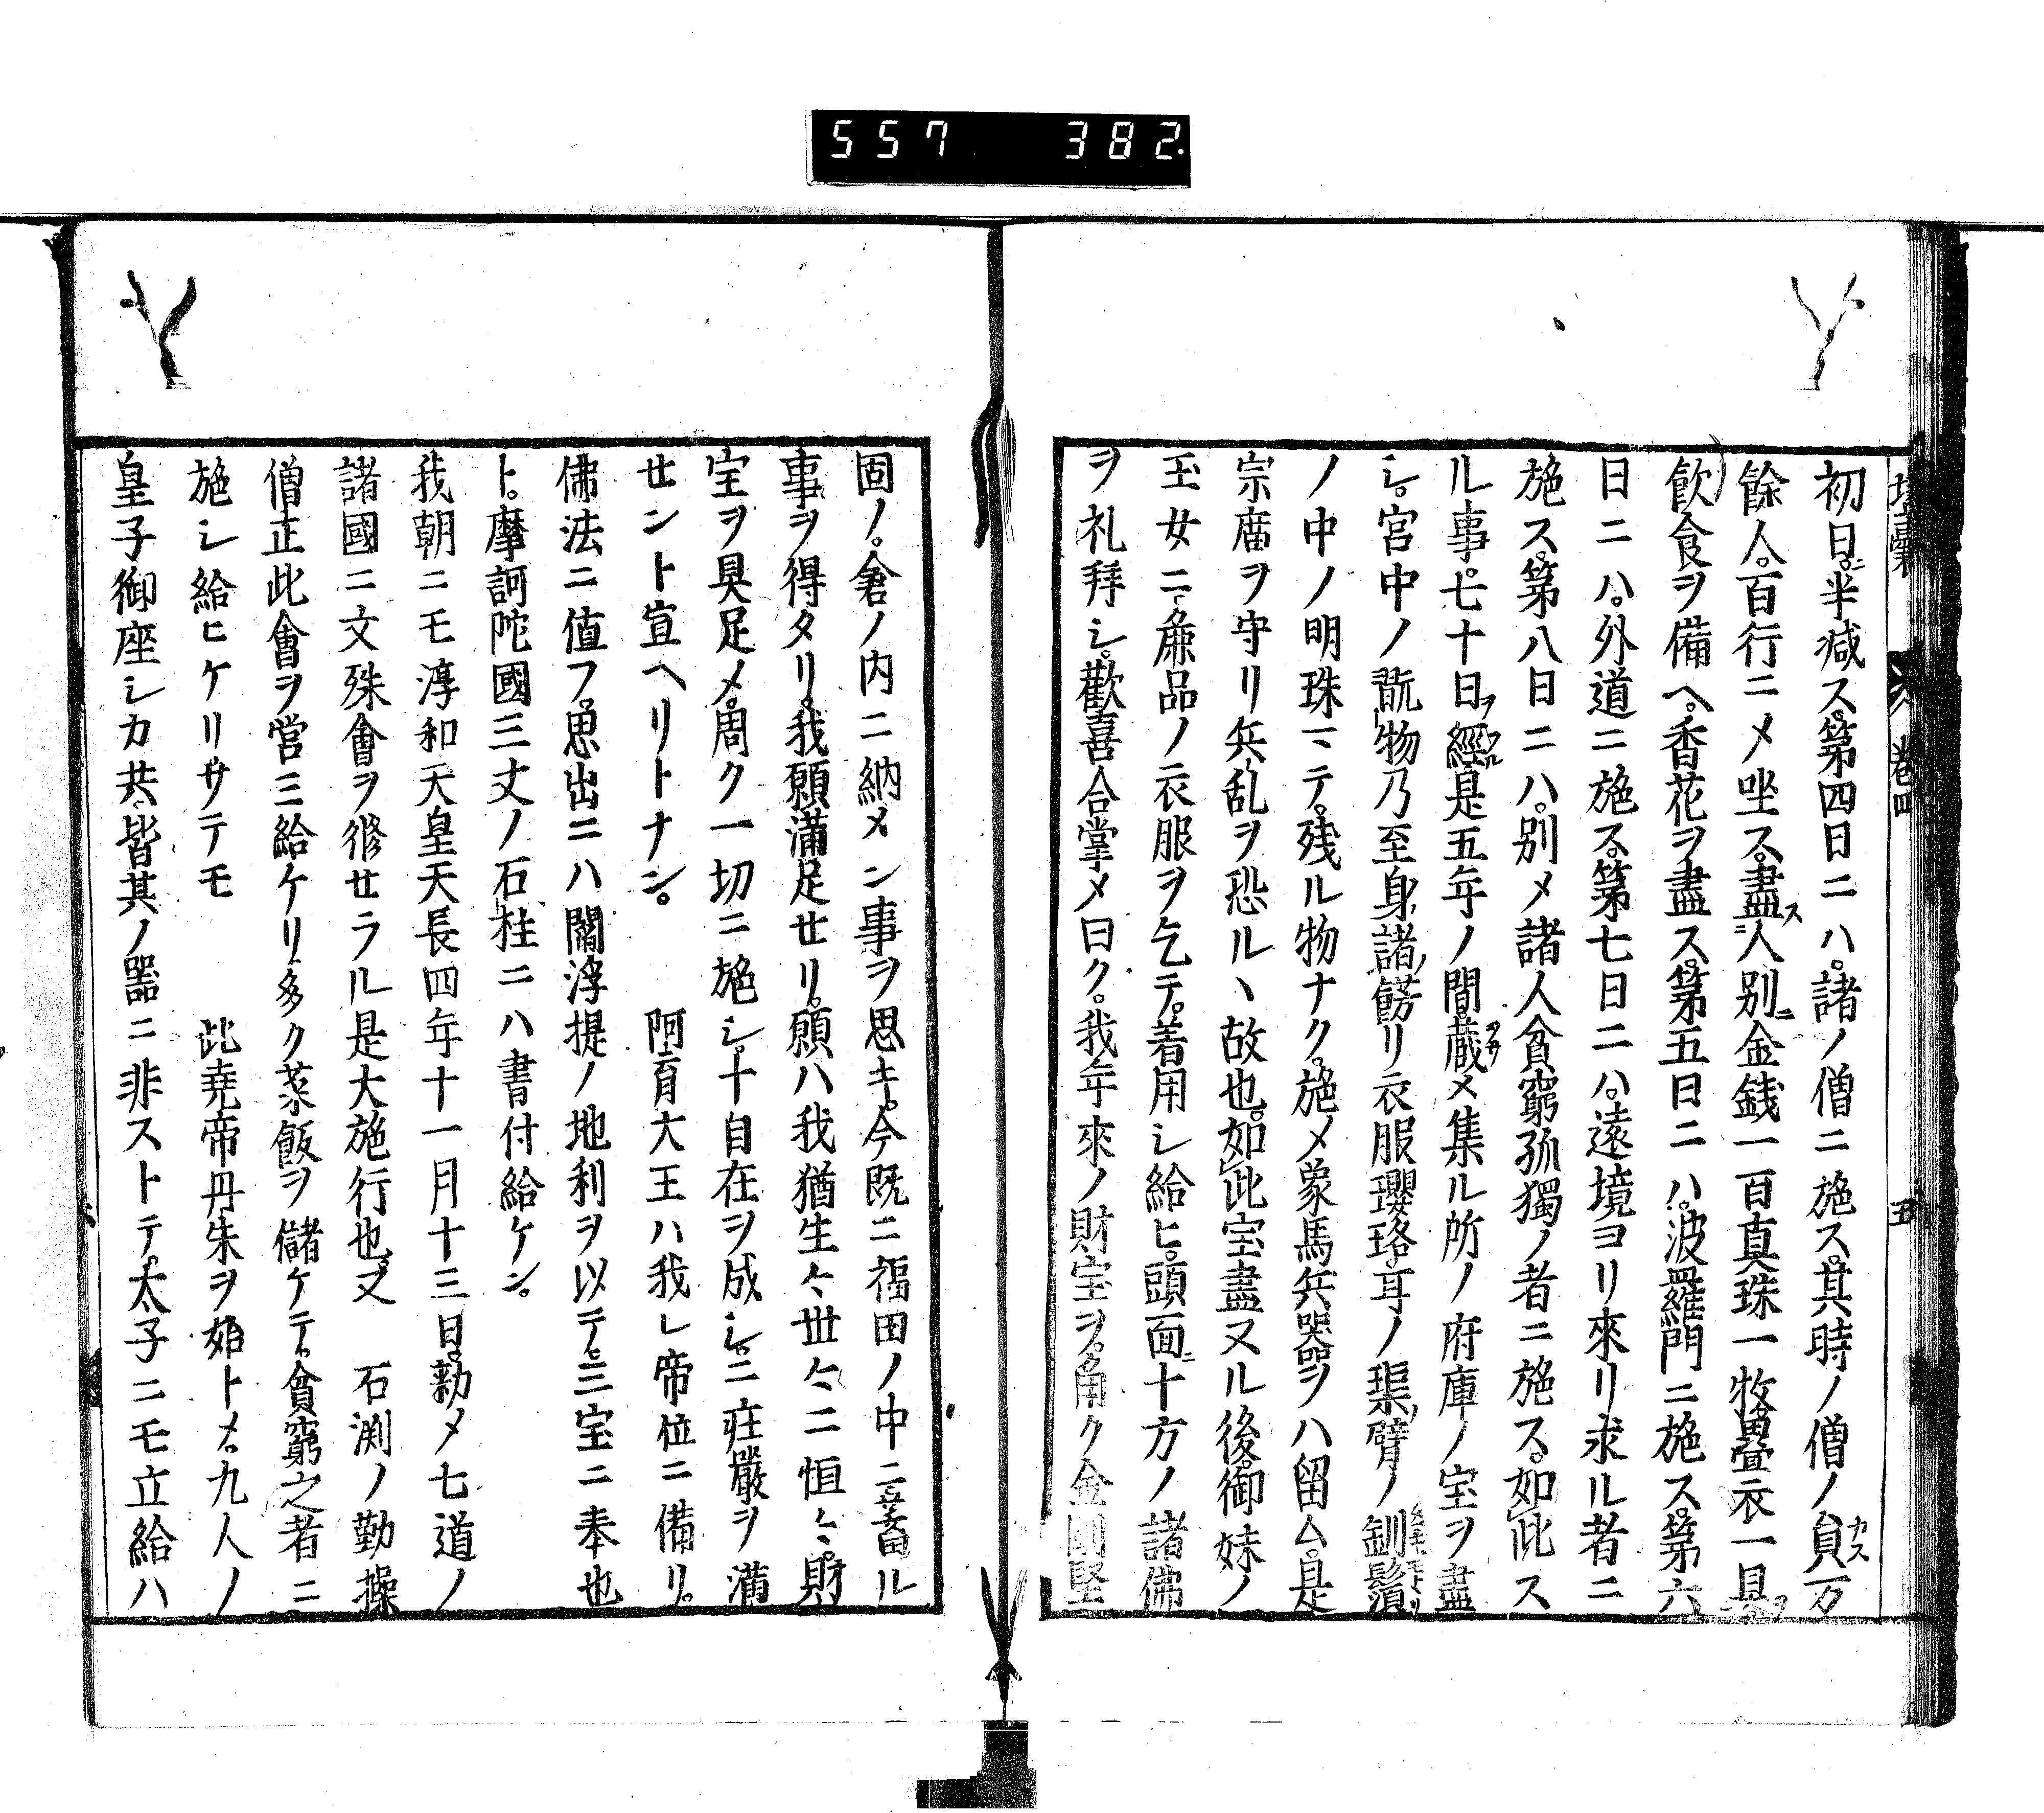 557 382
壒囊 巻四 五
初日ニ半減ス。第四日ニハ。諸ノ僧ニ施ス。其時ノ僧ノ員カス万
餘人。百行ニメ坐ス。盡ス人別ニ金銭一百真珠一牧畳衣一具
飲食ヲ備ヘ。香花ヲ盡ス。第五日ニハ。波羅門ニ施ス。第六
日ニハ。外道ニ施ス。第七日ニハ。遠境ヨリ來リ求ル者ニ
施ス。第八日ニハ。別メ諸人貧窮孤獨ノ者ニ施ス。如此ス
ル事。七十日ヲ經是五年ノ間。蔵メ集ル所ノ府庫ノ宝ヲ盡
シ。宮中ノ翫物乃至身ノ諸ノ餝リ衣服瓔珞。耳ノ璖臂ノ釧鬢
ノ中ノ明珠ニテ。残ル物ナク。施メ象馬兵器ヲハ留ム。是
宗庿ヲ守リ兵乱ヲ恐ルヽ故也。如此宝盡ヌル後。御妹ノ
玉女ニ麁品ノ衣服ヲ乞テ。着用シ給ヒ。頭面ニ十方ノ諸佛
ヲ礼拜シ。歡喜合掌メ曰ク。我年來ノ財宝ヲ。角ク金剛堅
固ノ。倉ノ内ニ納メン事ヲ思キ。今既ニ福田ノ中ニ畜ル
事ヲ得タリ。我願満足せリ。願ハ我猶生々世々ニ恒々。財
宝ヲ具足メ。周ク一切ニ施シ。十自在ヲ成シ。二荘嚴ヲ満
せント宣ヘリトナン。 阿育大王ハ我レ帝位ニ備リ。
佛法ニ値フ。思出ニハ閻浮提ノ地利ヲ以テ。三宝ニ奉也
ト。摩訶陀國三丈ノ石柱ニハ書付給ケン。
我朝ニモ淳和天皇天長四年十一月十三日。勅メ七道ノ
諸國ニ文殊會ヲ修せラル是大施行也。又 石渕ノ勤操
僧正此會ヲ営ミ給ケリ多ク菜飯ヲ儲ケテ。貧窮之者ニ
施シ給ヒケリ。サテモ 此堯帝丹朱ヲ始トメ。九人ノ
皇子御座シカ共。皆其ノ器ニ非ストテ。太子ニモ立給ハ